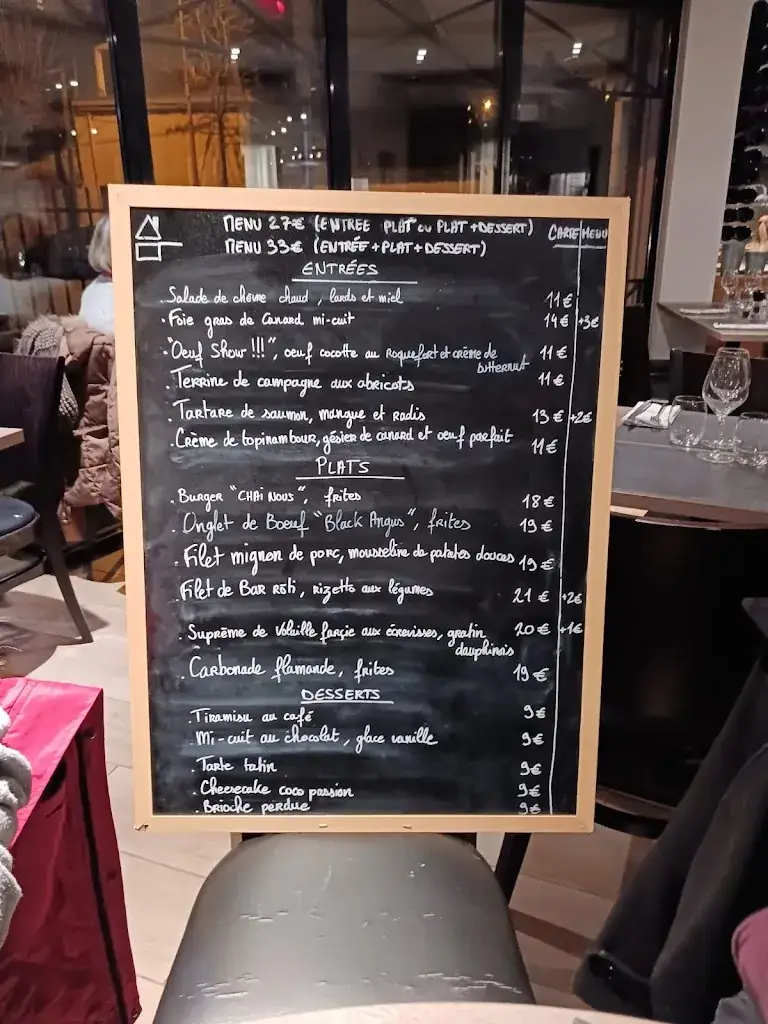 MENU 27€ (ENTREE PLAT ou PLAT + DESSERT) CARTE MENU
MENU 33€ (ENTRÉE + PLAT + DESSERT)
ENTRÉES
. Salade de chèvre chaud, lards et miel 11€
. Foie gras de Canard mi-cuit 14€ +3€
. "Oeuf Show !!!", oeuf cocotte au Roquefort et crème de 11€
butternut
. Terrine de campagne aux abricots 11€
. Tartare de saumon, mangue et radis 13€ +2€
. Crème de topinambour, gésier de canard et oeuf parfait 11€
PLATS
. Burger "CHAI NOUS", frites 18€
. Onglet de Boeuf "Black Angus", frites 19€
. Filet mignon de porc, mousseline de patates douces 19€
. Filet de BAR rôti, rizetto aux légumes 21€ +2€
. Suprême de Volaille farçie aux écrevisses, gratin 20€ +1€
dauphinois
. Carbonade flamande, frites 19€
DESSERTS
. Tiramisu au café 9€
. Mi-cuit au chocolat, glace vanille 9€
. Tarte tatin 9€
. Cheesecake coco passion 9€
. Brioche perdue 9€